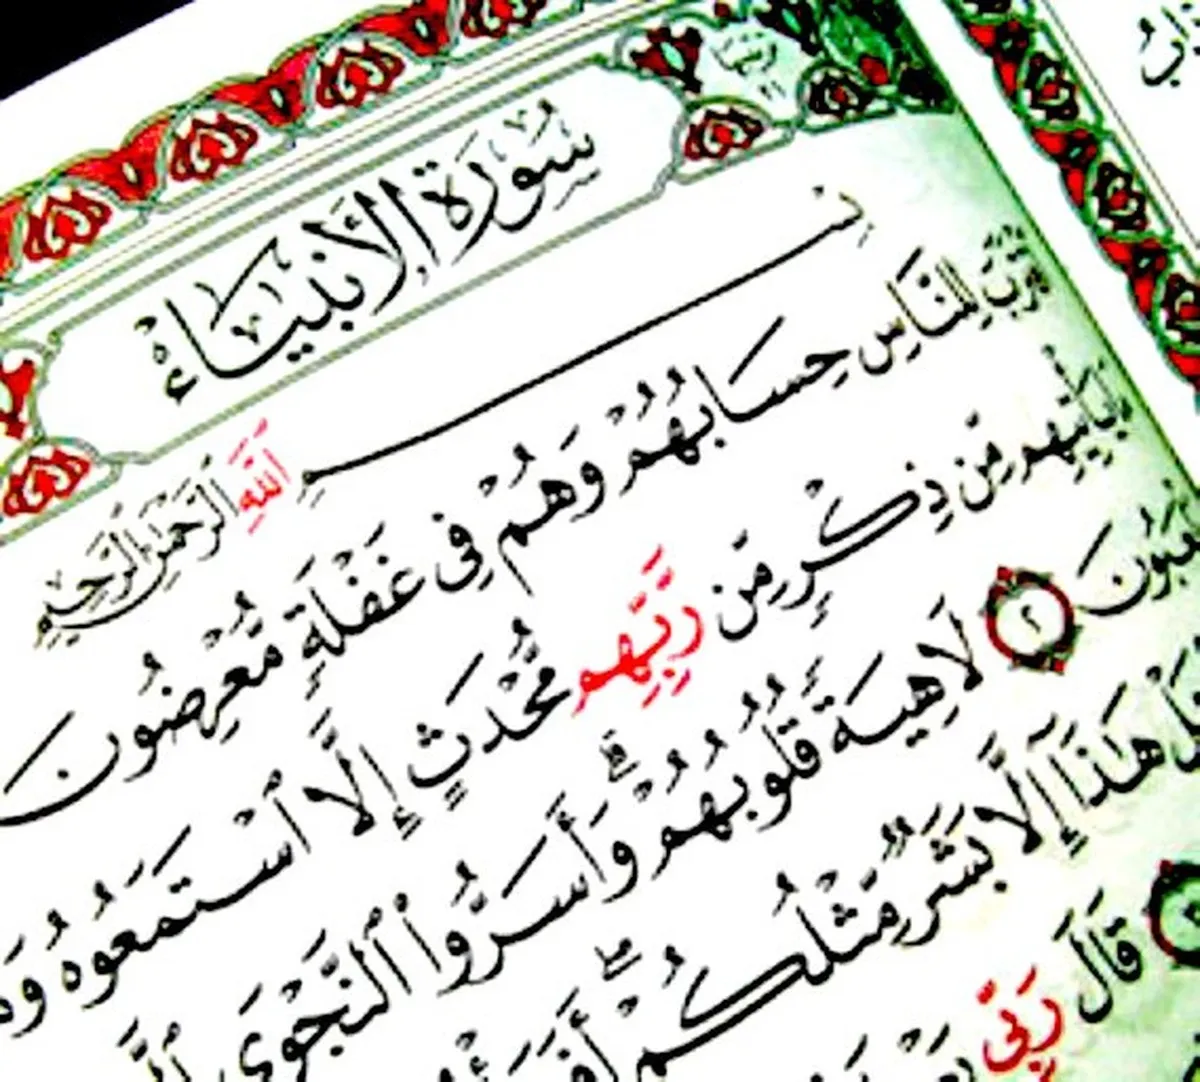 سُورَةُ الأَنبِيَاءِ
بِسْمِ اللَّهِ الرَّحْمَٰنِ الرَّحِيمِ
لِلنَّاسِ حِسَابُهُمْ وَهُمْ فِي غَفْلَةٍ مُّعْرِضُونَ
يَأْتِيهِم مِّن ذِكْرٍ مِّن رَّبِّهِم مُّحْدَثٍ إِلَّا ٱسْتَمَعُوهُ
٢ لَاهِيَةً قُلُوبُهُمْ ۗ وَأَسَرُّوا۟ ٱلنَّجْوَى
هَٰذَآ إِلَّا بَشَرٌ مِّثْلُكُمْ ۖ
قَالَ رَبِّي